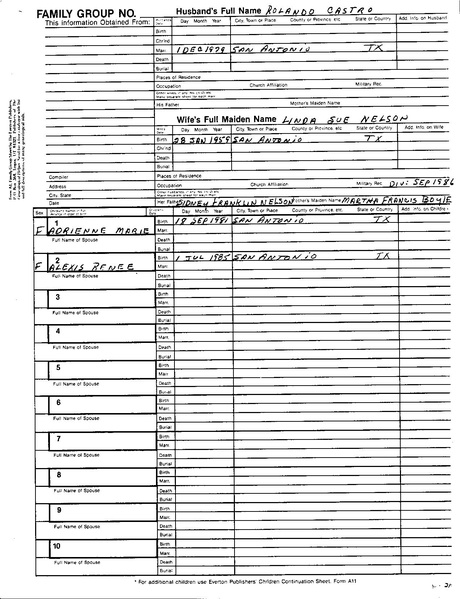 FAMILY GROUP NO.
This Information Obtained From:
Husband's Full Name ROLANDO CASTRO
Day Month Year City, Town or Place County or Province, etc. State or Country Add. Info. on Husband
Birth
Chr'nd
Marr. 1 DEC 1979 SAN ANTONIO TX
Death
Burial
Places of Residence
Occupation Church Affiliation Military Rec.
His Father Mother's Maiden Name
Wife's Full Maiden Name LINDA SUE NELSON
Day Month Year City, Town or Place County or Province, etc. State or Country Add. Info. on Wife
Birth 28 JAN 1959 SAN ANTONIO TX
Chr'nd
Death
Burial
Compiler Places of Residence
Address Occupation Church Affiliation Military Rec. DIV: SEP 1986
City, State
Date Her Father SIDNEY FRANKLIN NELSON Mother's Maiden Name MARTHA FRANCIS BOYLE
Sex Day Month Year City, Town or Place County or Province, etc. State or Country Add. Info. on Children
1 Birth 18 SEP 1981 SAN ANTONIO TX
F ADRIENNE MARIE Marr.
Full Name of Spouse Death
Burial
2 Birth 1 JUL 1985 SAN ANTONIO TX
F ALEXIS RENEE Marr.
Full Name of Spouse Death
Burial
3 Birth
Marr.
Full Name of Spouse Death
Burial
4 Birth
Marr.
Full Name of Spouse Death
Burial
5 Birth
Marr.
Full Name of Spouse Death
Burial
6 Birth
Marr.
Full Name of Spouse Death
Burial
7 Birth
Marr.
Full Name of Spouse Death
Burial
8 Birth
Marr.
Full Name of Spouse Death
Burial
9 Birth
Marr.
Full Name of Spouse Death
Burial
10 Birth
Marr.
Full Name of Spouse Death
Burial
* For additional children use Everton Publishers' Children Continuation Sheet, Form A11